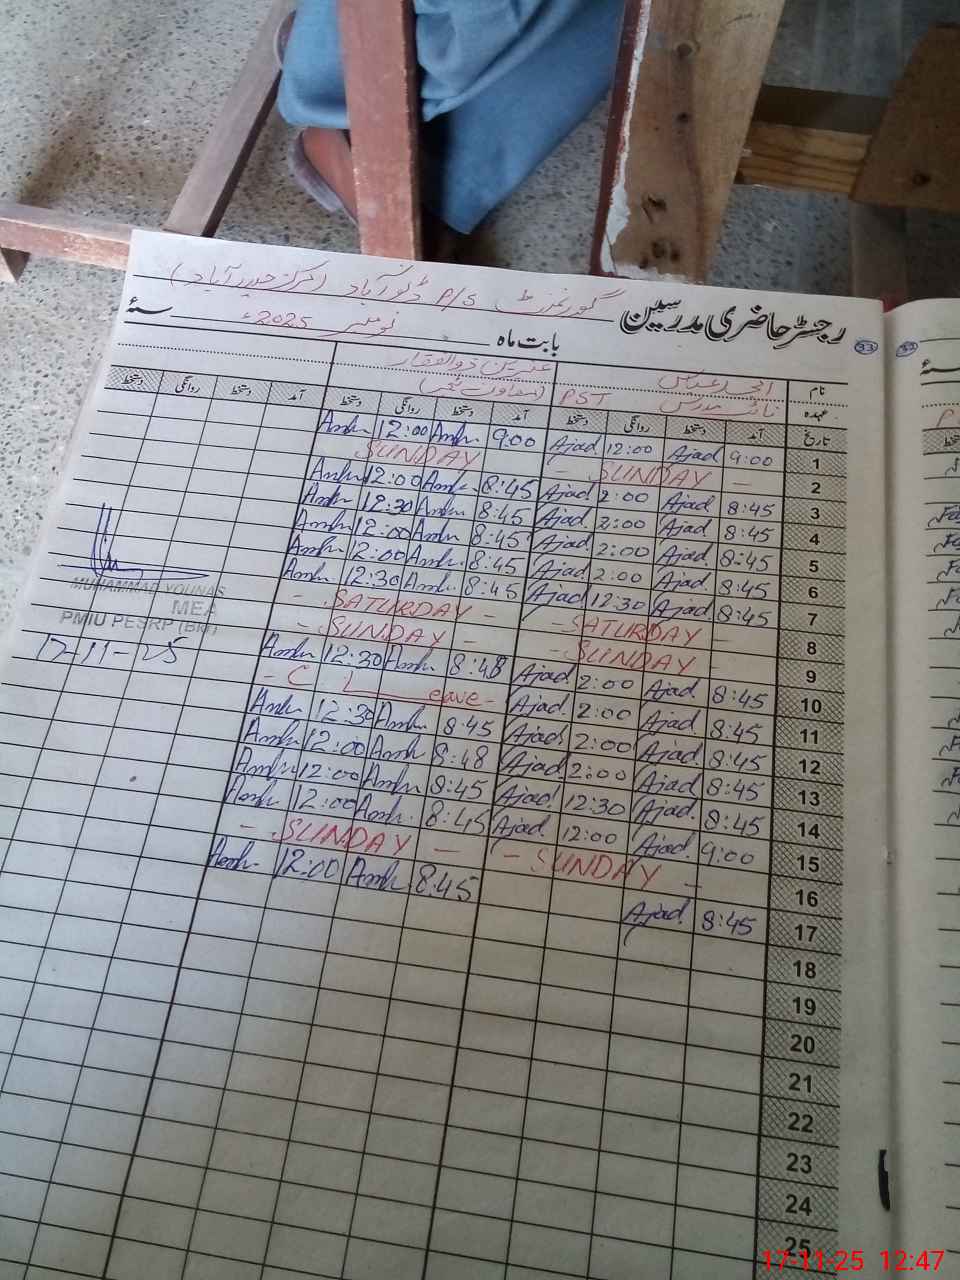 رجسٹر حاضری مدرسین گورنمنٹ P/S ڈنور آباد (مرکز حیدرآباد)
33
بابت ماہ نومبر 2025ء سنۂ
نام امجد عباس عنبرین ذوالفقار
عہدہ نائب مدرس PST
تاریخ آمد دستخط روانگی دستخط آمد دستخط روانگی دستخط آمد دستخط روانگی دستخط
1 9:00 Ajad 12:00 Ajad 9:00 12:00
2 SUNDAY SUNDAY
3 8:45 Ajad 2:00 Ajad 8:45 12:00
4 8:45 Ajad 2:00 Ajad 8:45 12:30
5 8-45 Ajad 2:00 Ajad 8:45 12:00
6 8:45 Ajad 2:00 Ajad 8:45 12:00
7 8:45 Ajad 12:30 Ajad 8:45 12:30
8 SATURDAY SATURDAY
9 SUNDAY SUNDAY
10 8:45 Ajad 2:00 Ajad 8:48 12:30
11 8:45 Ajad 2:00 Ajad C Leave
12 8:45 Ajad 2:00 Ajad 8:45 12:30
13 8:45 Ajad 2:00 Ajad 8:48 12:00
14 8:45 Ajad 12:30 Ajad 8:45 12:00
15 9:00 Ajad 12:00 Ajad 8:45 12:00
16 SUNDAY SUNDAY
17 8:45 Ajad 8:45 12:00
18
19
20
21
22
23
24
25
MUHAMMAD YOUNAS
MEA
PMIU PESRP (BKR)
17-11-25
17-11-25 12:47